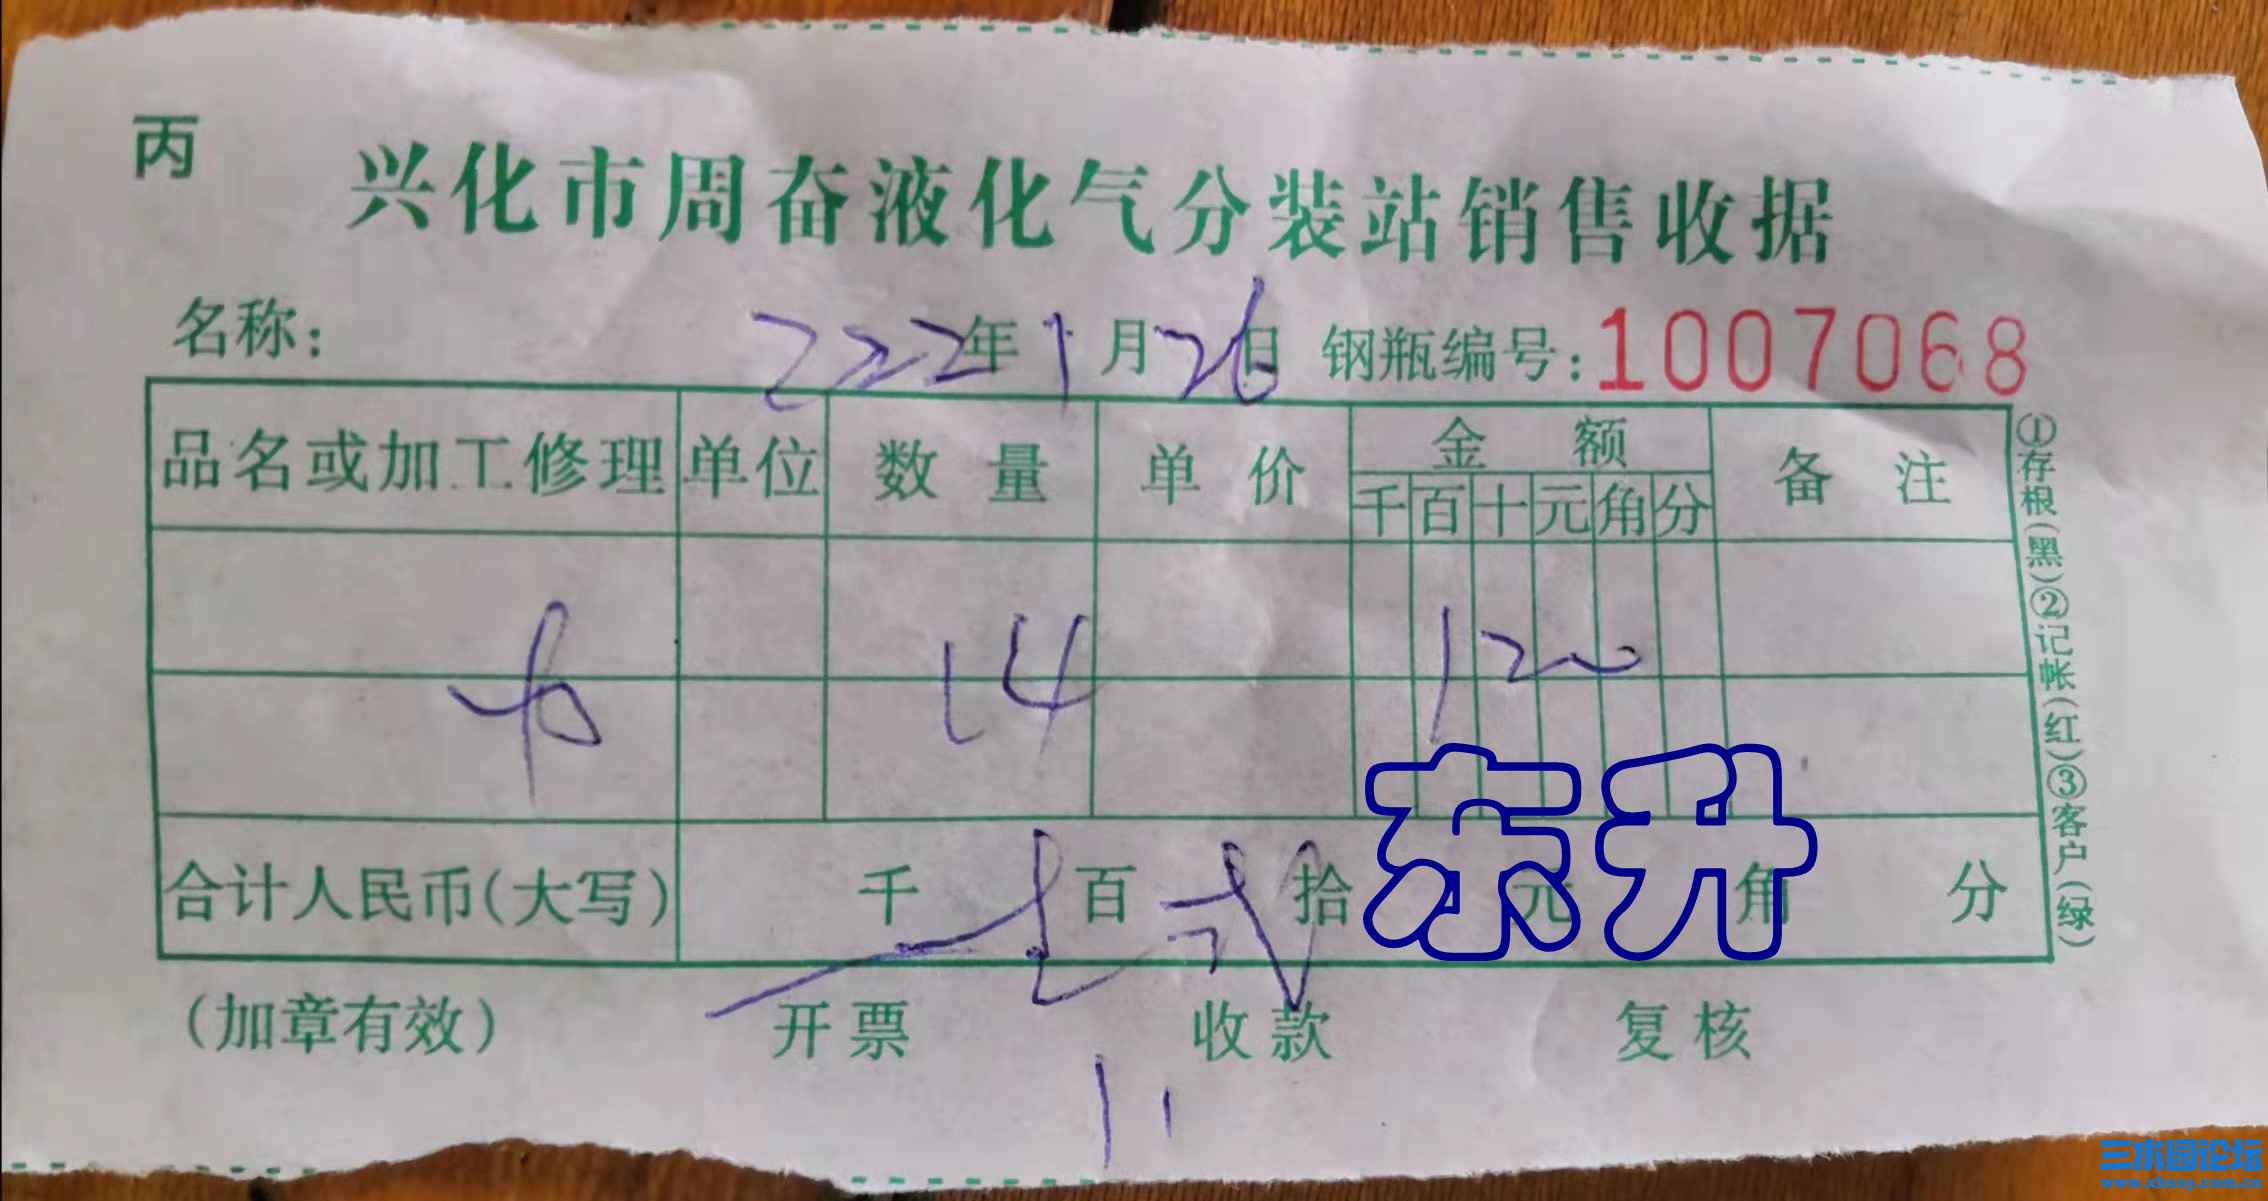 丙
兴化市周奋液化气分装站销售收据
名称: 222年1月26日 钢瓶编号:1007068
品名或加工修理 单位 数量 单价 金额 备注
千 百 十 元 角 分
14 120
合计人民币(大写) 千 百 贰 拾 元 角 分
(加章有效) 开票 收款 复核
①存根(黑)②记帐(红)③客户(绿)
东升
三水园论坛
www.xhssy.com.cn